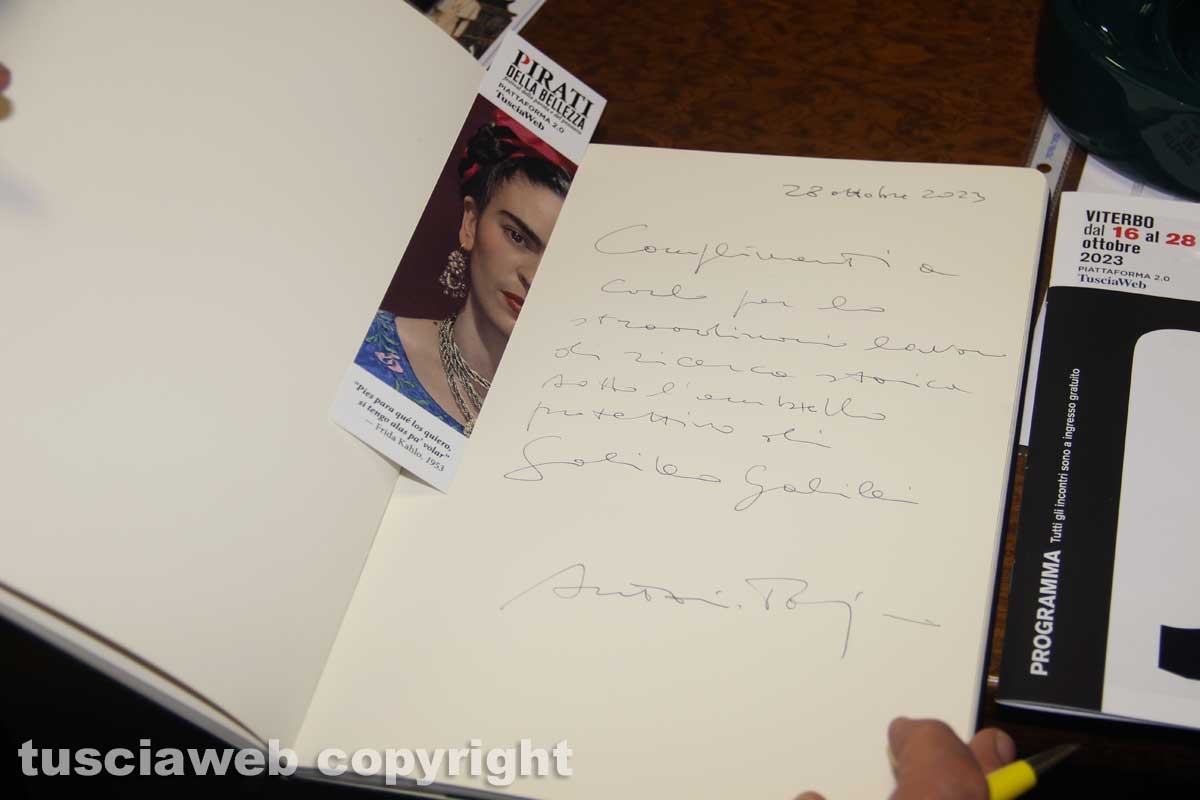 PIRATI
DELLA BELLEZZA
PIATTAFORMA 2.0
TusciaWeb
"Pies para qué los quiero,
si tengo alas pa' volar"
— Frida Kahlo, 1953
28 ottobre 2023
Complimenti a
Carlo per lo
straordinario lavoro
di ricerca storica
sotto l'ombrello
protettivo di
Galileo Galilei
VITERBO
dal 16 al 28
ottobre
2023
PIATTAFORMA 2.0
TusciaWeb
PROGRAMMA Tutti gli incontri sono a ingresso gratuito
tusciaweb copyright